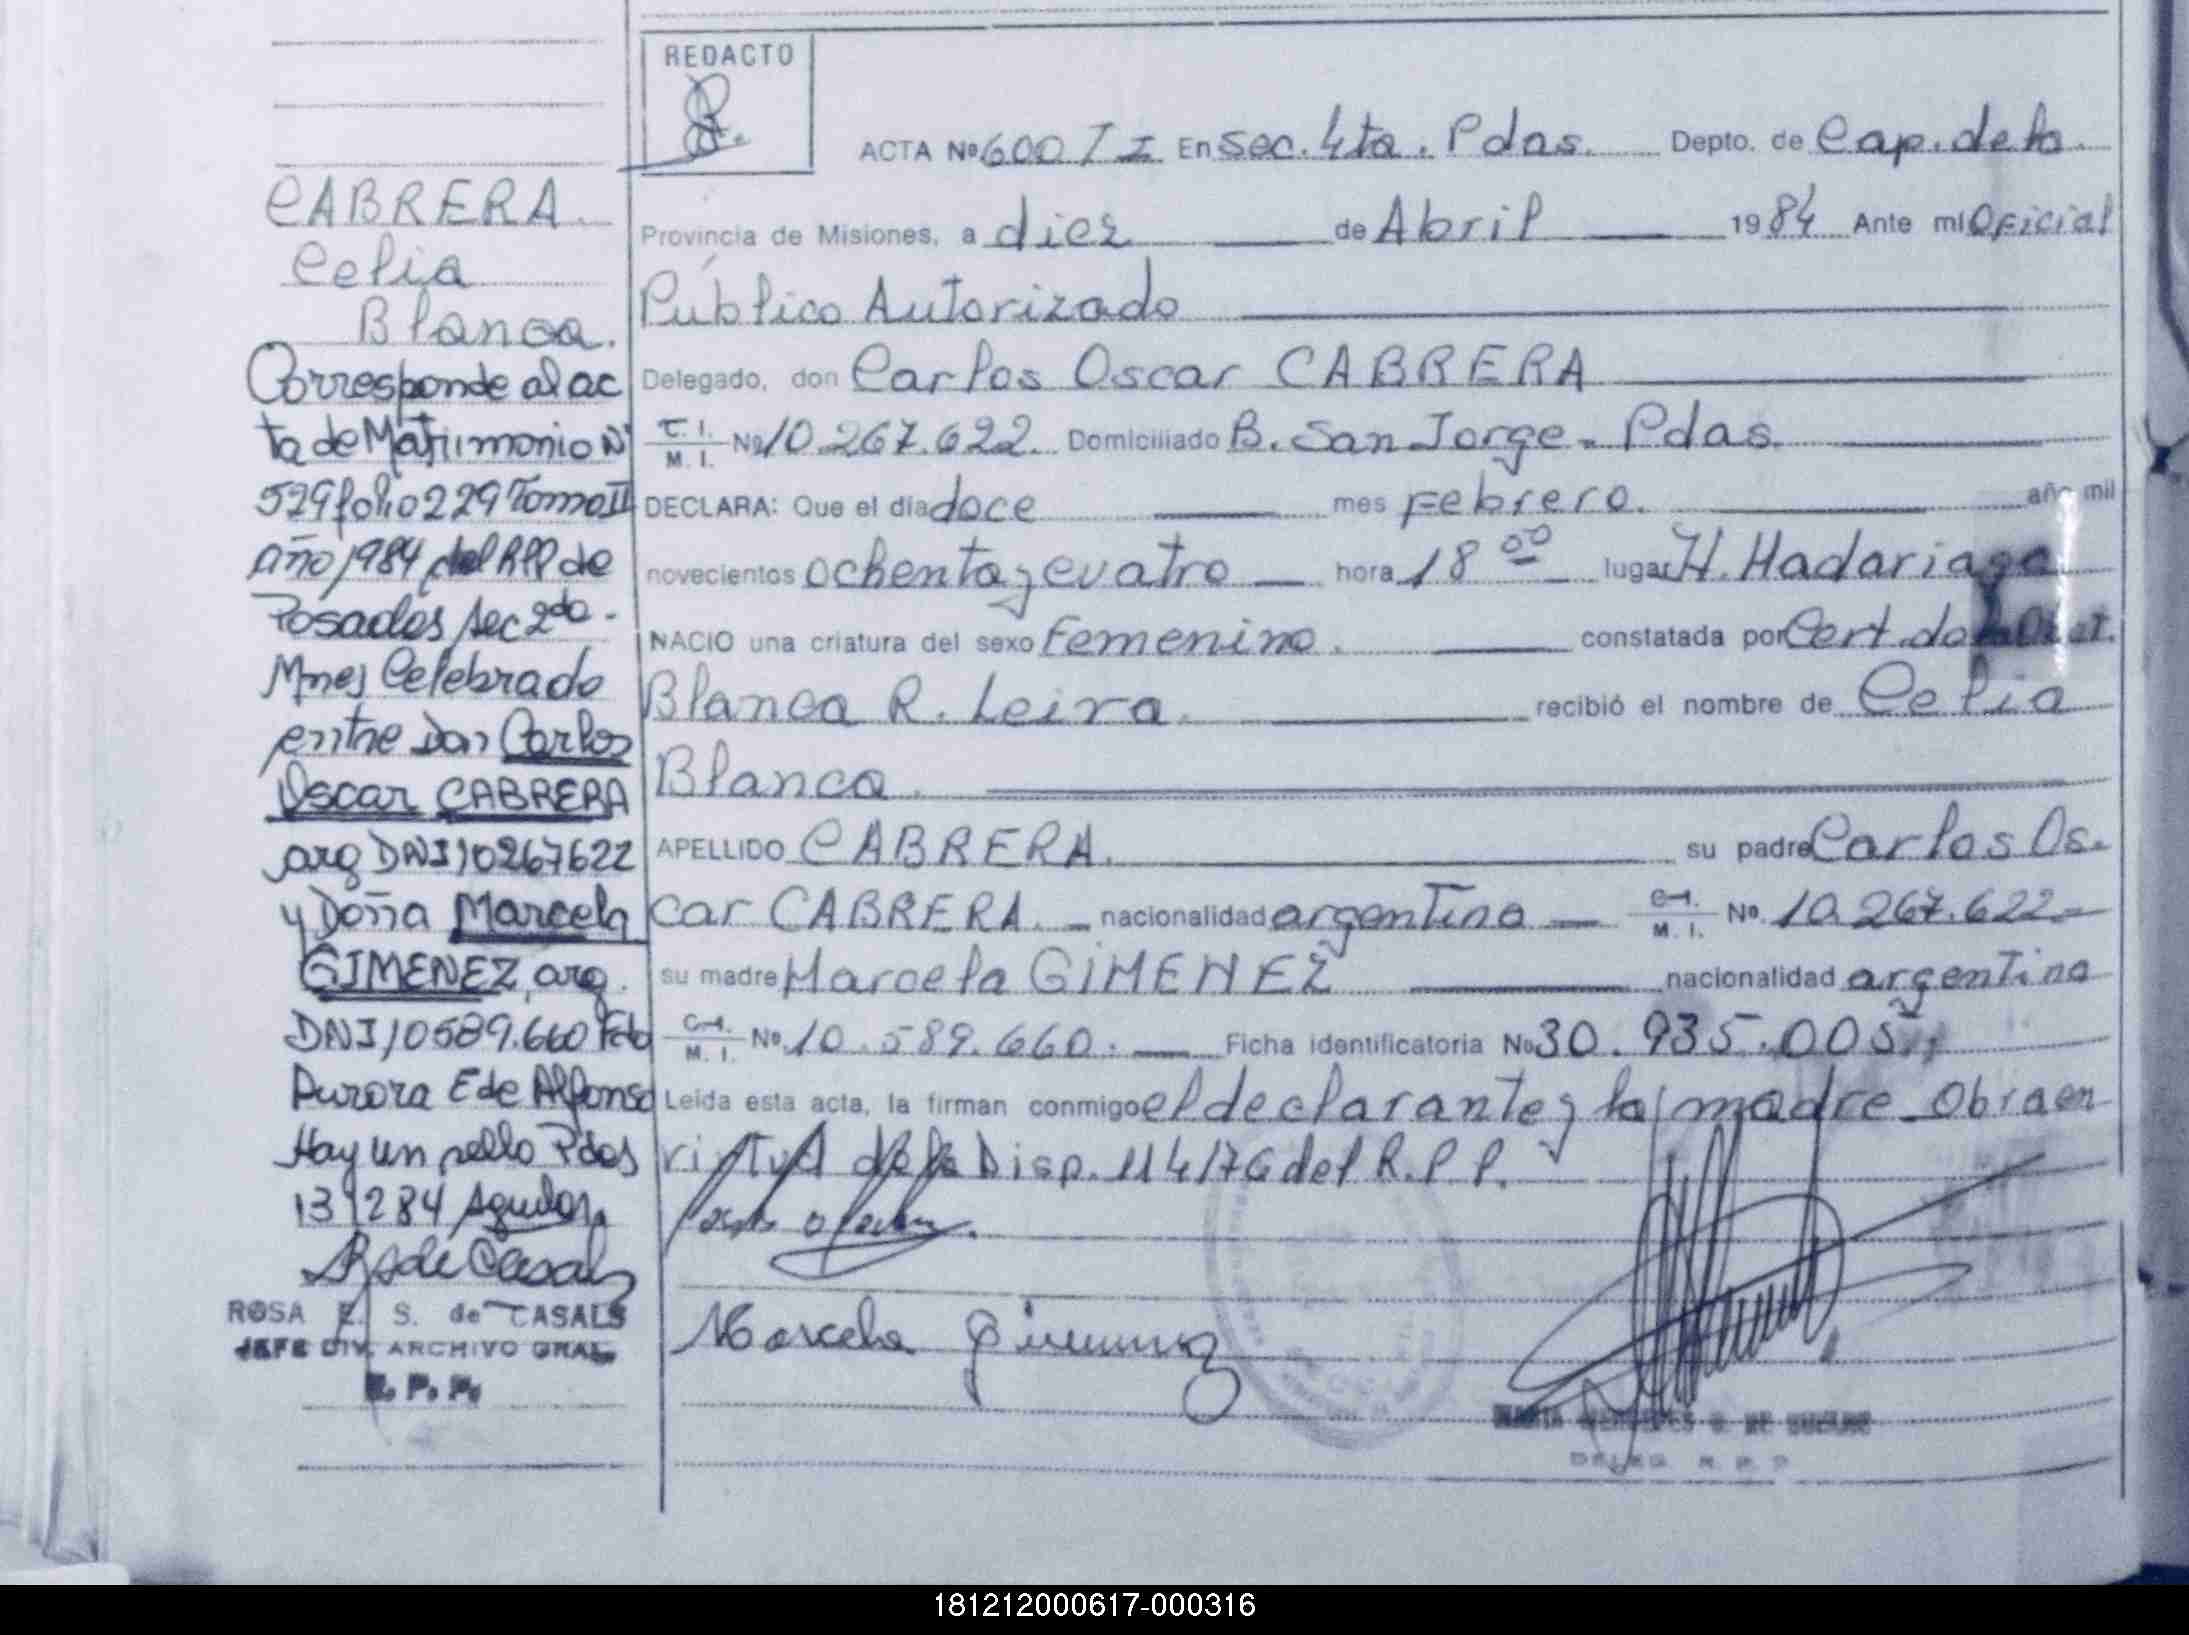 REDACTO
ACTA Nº 600 T I En Sec. 4ta. Pdas. Depto. de Cap. de la
Provincia de Misiones, a diez de Abril 1984 Ante mi Oficial
Público Autorizado
Delegado, don Carlos Oscar CABRERA
C. I.
M. I. Nº 10.267.622. Domiciliado B. San Jorge - Pdas.
DECLARA: Que el día doce mes Febrero. año mil
novecientos ochenta y cuatro hora 18 00 lugar H. Madariaga
NACIO una criatura del sexo Femenino. constatada por Cert. de
Blanca R. Leiva. recibió el nombre de Celia
Blanca.
APELLIDO CABRERA. su padre Carlos Os-
car CABRERA. nacionalidad argentina C.I.
M. I. Nº 10.267.622
su madre Marcela GIMENEZ nacionalidad argentina
C.I.
M. I. Nº 10.589.660. Ficha identificatoria Nº 30.935.005
Leida esta acta, la firman conmigo el declarante y la madre Obra en
virtud de la Disp. 114/76 del R.P.P.
Marcela Gimenez
DELEG. R. P. P.
CABRERA.
Celia
Blanca.
Corresponde al ac
ta de Matrimonio Nº
529 folio 229 Tomo II
Año 1984 del RPP de
Posadas sec 2da.
Mnes Celebrado
entre Don Carlos
Oscar CABRERA
arg DNI 10267622
y Doña Marcela
GIMENEZ, arg.
DNI 10589.660 Fdo
Aurora E de Alfonso
Hay un sello Pdas
13 12 84 Aguilar
R S de Casals
ROSA E. S. de CASALS
JEFE DIV. ARCHIVO GRAL.
R. P. P.
181212000617-000316